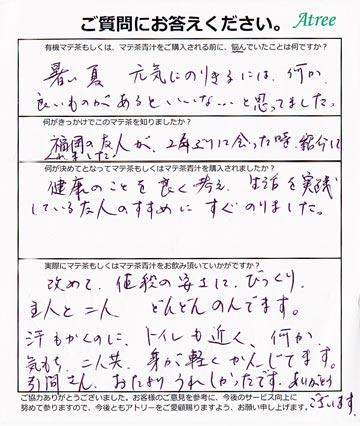 ご質問にお答えください。 Atree
有機マテ茶もしくは、マテ茶青汁をご購入される前に、悩んでいたことは何ですか?
暑い夏 元気にのりきるには、何か
良いものがあるといいな…と思ってました。
何がきっかけでこのマテ茶を知りましたか?
福岡の友人が、2年ぶりに会った時、紹介して
くれました
何が決めてとなってマテ茶もしくはマテ茶青汁を購入されましたか?
健康のことを良く考え、生活を実践
している友人のすすめに すぐのりました。
実際にマテ茶もしくはマテ茶青汁をお飲み頂いていかがですか?
改めて、値段の安さに、びっくり、
主人と二人 どんどんのんでます。
汗もかくのに、トイレも近く、何か
気もち、二人共、身が軽くかんじてます。
引間さん、おたよりうれしかったです。ありがとう
ございます
ご協力ありがとうございました。お客様のご意見を参考に、今後のサービス向上に
努めて参りますので、今後ともアトリーをご愛顧賜りますよう、お願い申し上げます。